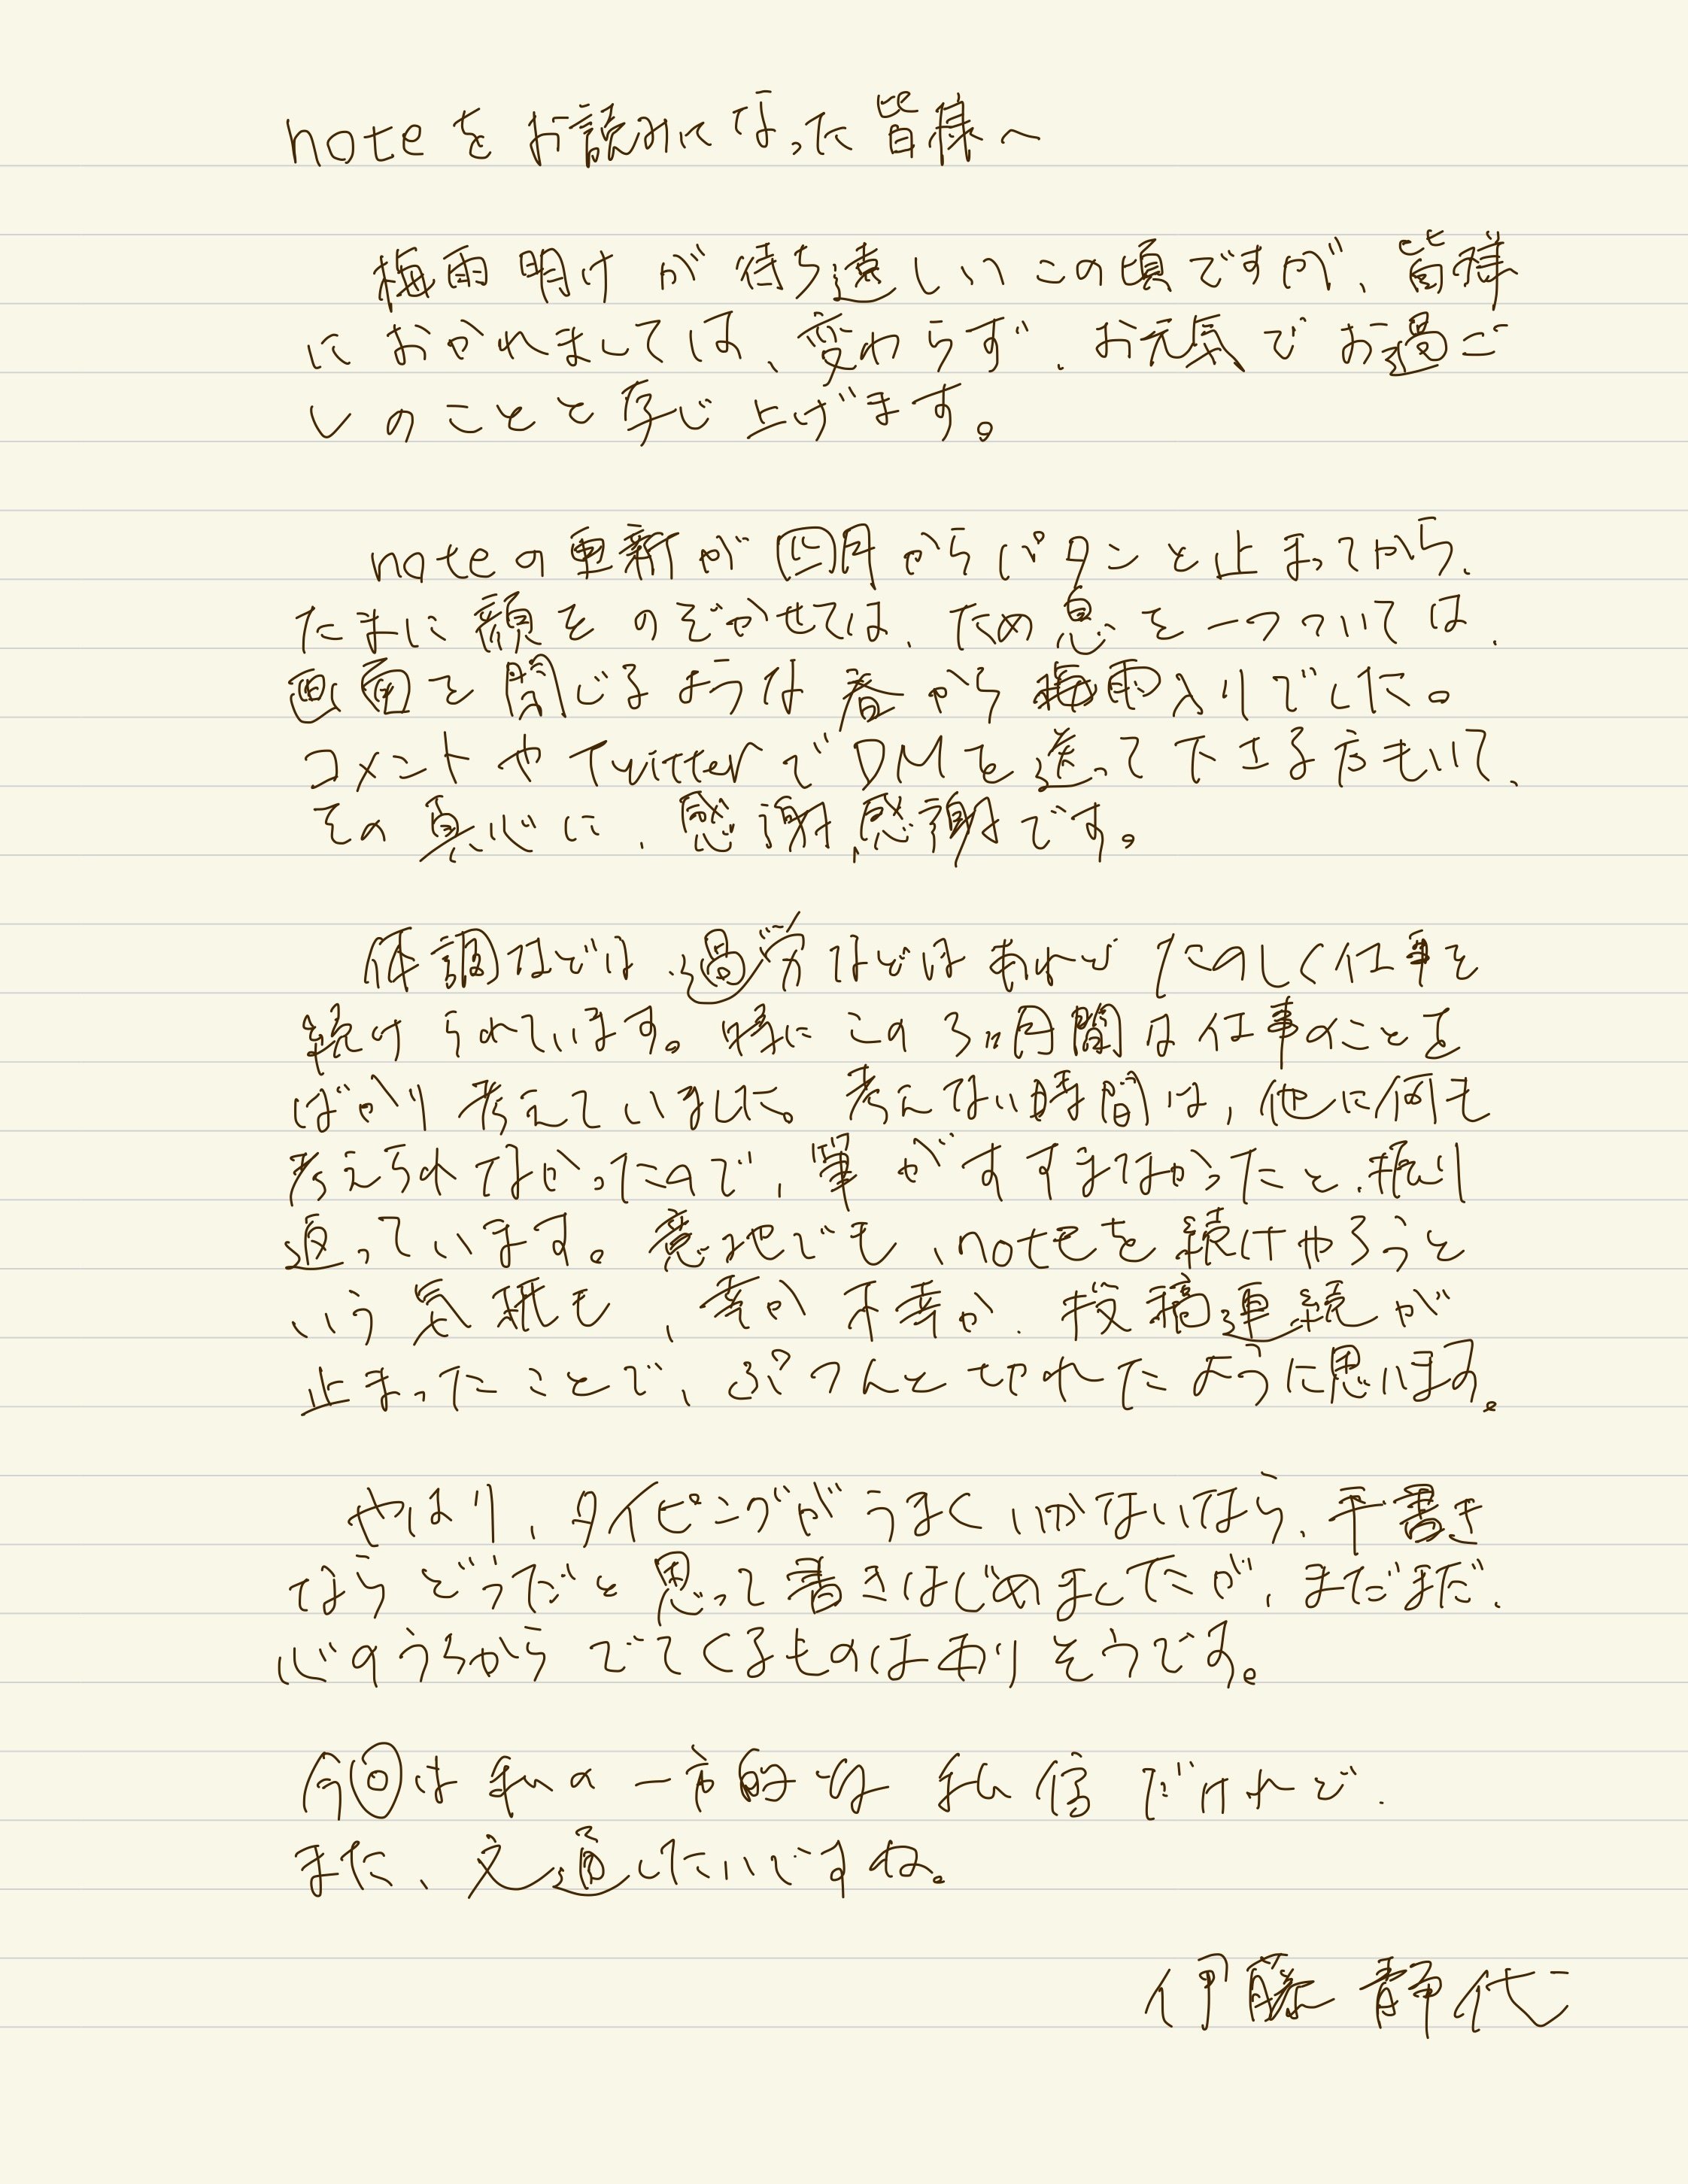 noteをお読みになった皆様へ
梅雨明けが待ち遠しいこの頃ですが、皆様
におかれましては、変わらず、お元気でお過ご
しのことと存じ上げます。
noteの更新が四月からパタンと止まってから、
たまに顔をのぞかせては、ため息を一つついては、
画面を閉じるような春から梅雨入りでした。
コメントやTwitterでDMを送って下さる方もいて、
その真心に、感謝、感謝です。
体調などは、過労などはあれどたのしく仕事を
続けられています。特にこの3ヶ月間は仕事のことを
ばかり考えていました。考えない時間は、他に何も
考えられなかったので、筆がすすまなかったと、振り
返っています。意地でも、noteを続けやろうと
いう気概も、幸か不幸か、投稿連続が
止まったことで、ぷつんと切れたように思います。
やはり、タイピングがうまくいかないなら、手書き
ならどうだと思って書きはじめましたが、まだまだ、
心のうちからでてくるものはありそうです。
今回は私の一方的な私信だけれど、
また、文通したいですね。
伊藤静代